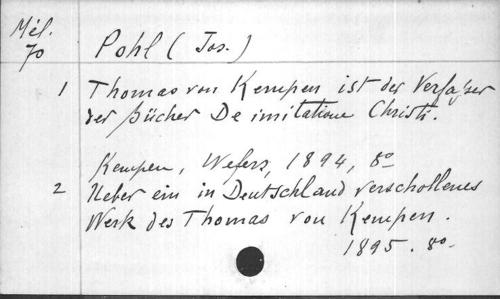 Mél.
70
Pohl (Jos.)
1 Thomas von Kempen ist der Verfasser
der Bücher De imitatione Christi.
Kempen, Wefers, 1894, 8º
2 Ueber ein in Deutschland verschollenes
Werk des Thomas von Kempen.
1895. 8º